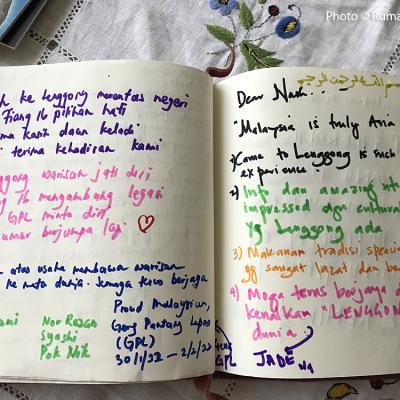 Photo © Ruma
ke Lenggong merentas negeri
Tiang 16 pilihan hati
kari daun keladi
terima kehadiran kami
warisan jati diri
16 mengambang legasi
GPL minta diri
berjumpa lagi
atas usaha membawa warisan
ke mata dunia. Semoga terus berjaya
Proud Malaysian,
Geng Pantang Lepas
(GPL)
30/1/22 – 2/2/22
Nor Rozan
Syashi
Pok Nik
بسم الله الرحمن الرحيم
Dear Nash...
"Malaysia is truly Asia
1) Came to Lenggong is such
experience
2) Info dan amazing
impressed dgn cultural
yg Lenggong ada
3) Makanan tradisi special
yg sangat lazat dan
4) Moga terus berjaya
kenalkan "LENGGON
dunia
GPL
JADE